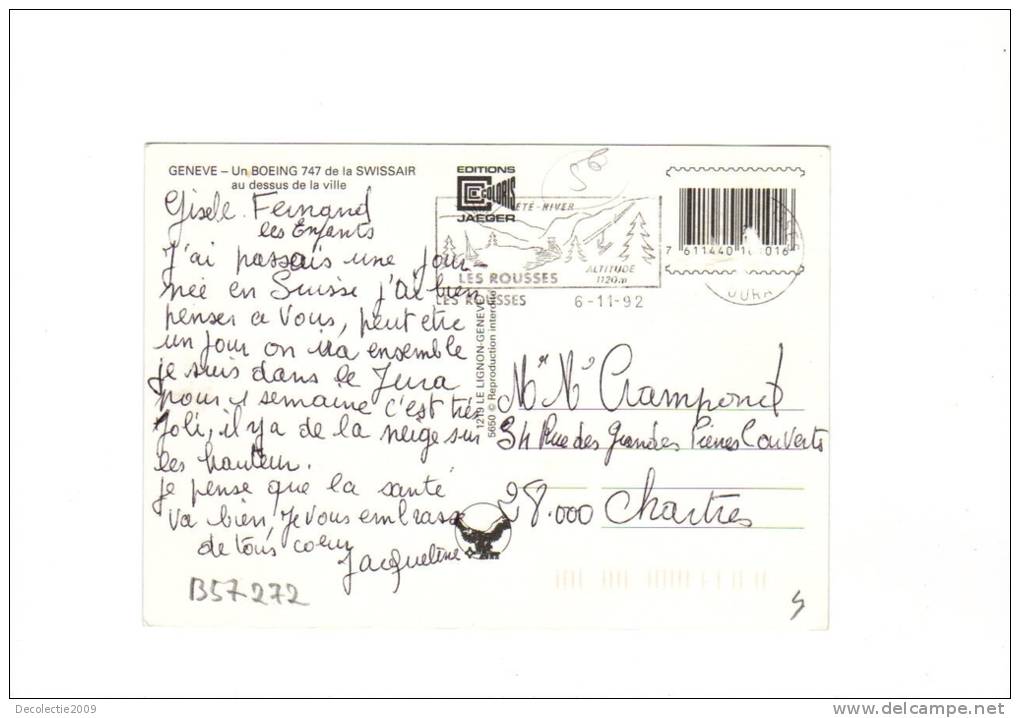 GENEVE – Un BOEING 747 de la SWISSAIR
au dessus de la ville
Gisele. Fernand
les Enfants
J'ai passais une jour-
née en Suisse j'ai bien
penser a Vous, peut etre
un jour on ira ensemble
je suis dans le Jura
pour 1 semaine c'est très
Joli, il y a de la neige sur
les hauteur.
je pense que la santé
va bien, Je vous embrasse
de tous coeur
Jacqueline
B57272
EDITIONS
COLORIS
JAEGER
56
ÉTÉ-HIVER
ALTITUDE
1120m
LES ROUSSES
LES ROUSSES
6-11-92
JURA
7 611440 016
1219 LE LIGNON-GENEVE
5650 © Reproduction interdite
Mr Me Crampond
34 Rue des Grandes Pierres Couverts
28.000 Chartres
Decolectie2009
delcampe.net